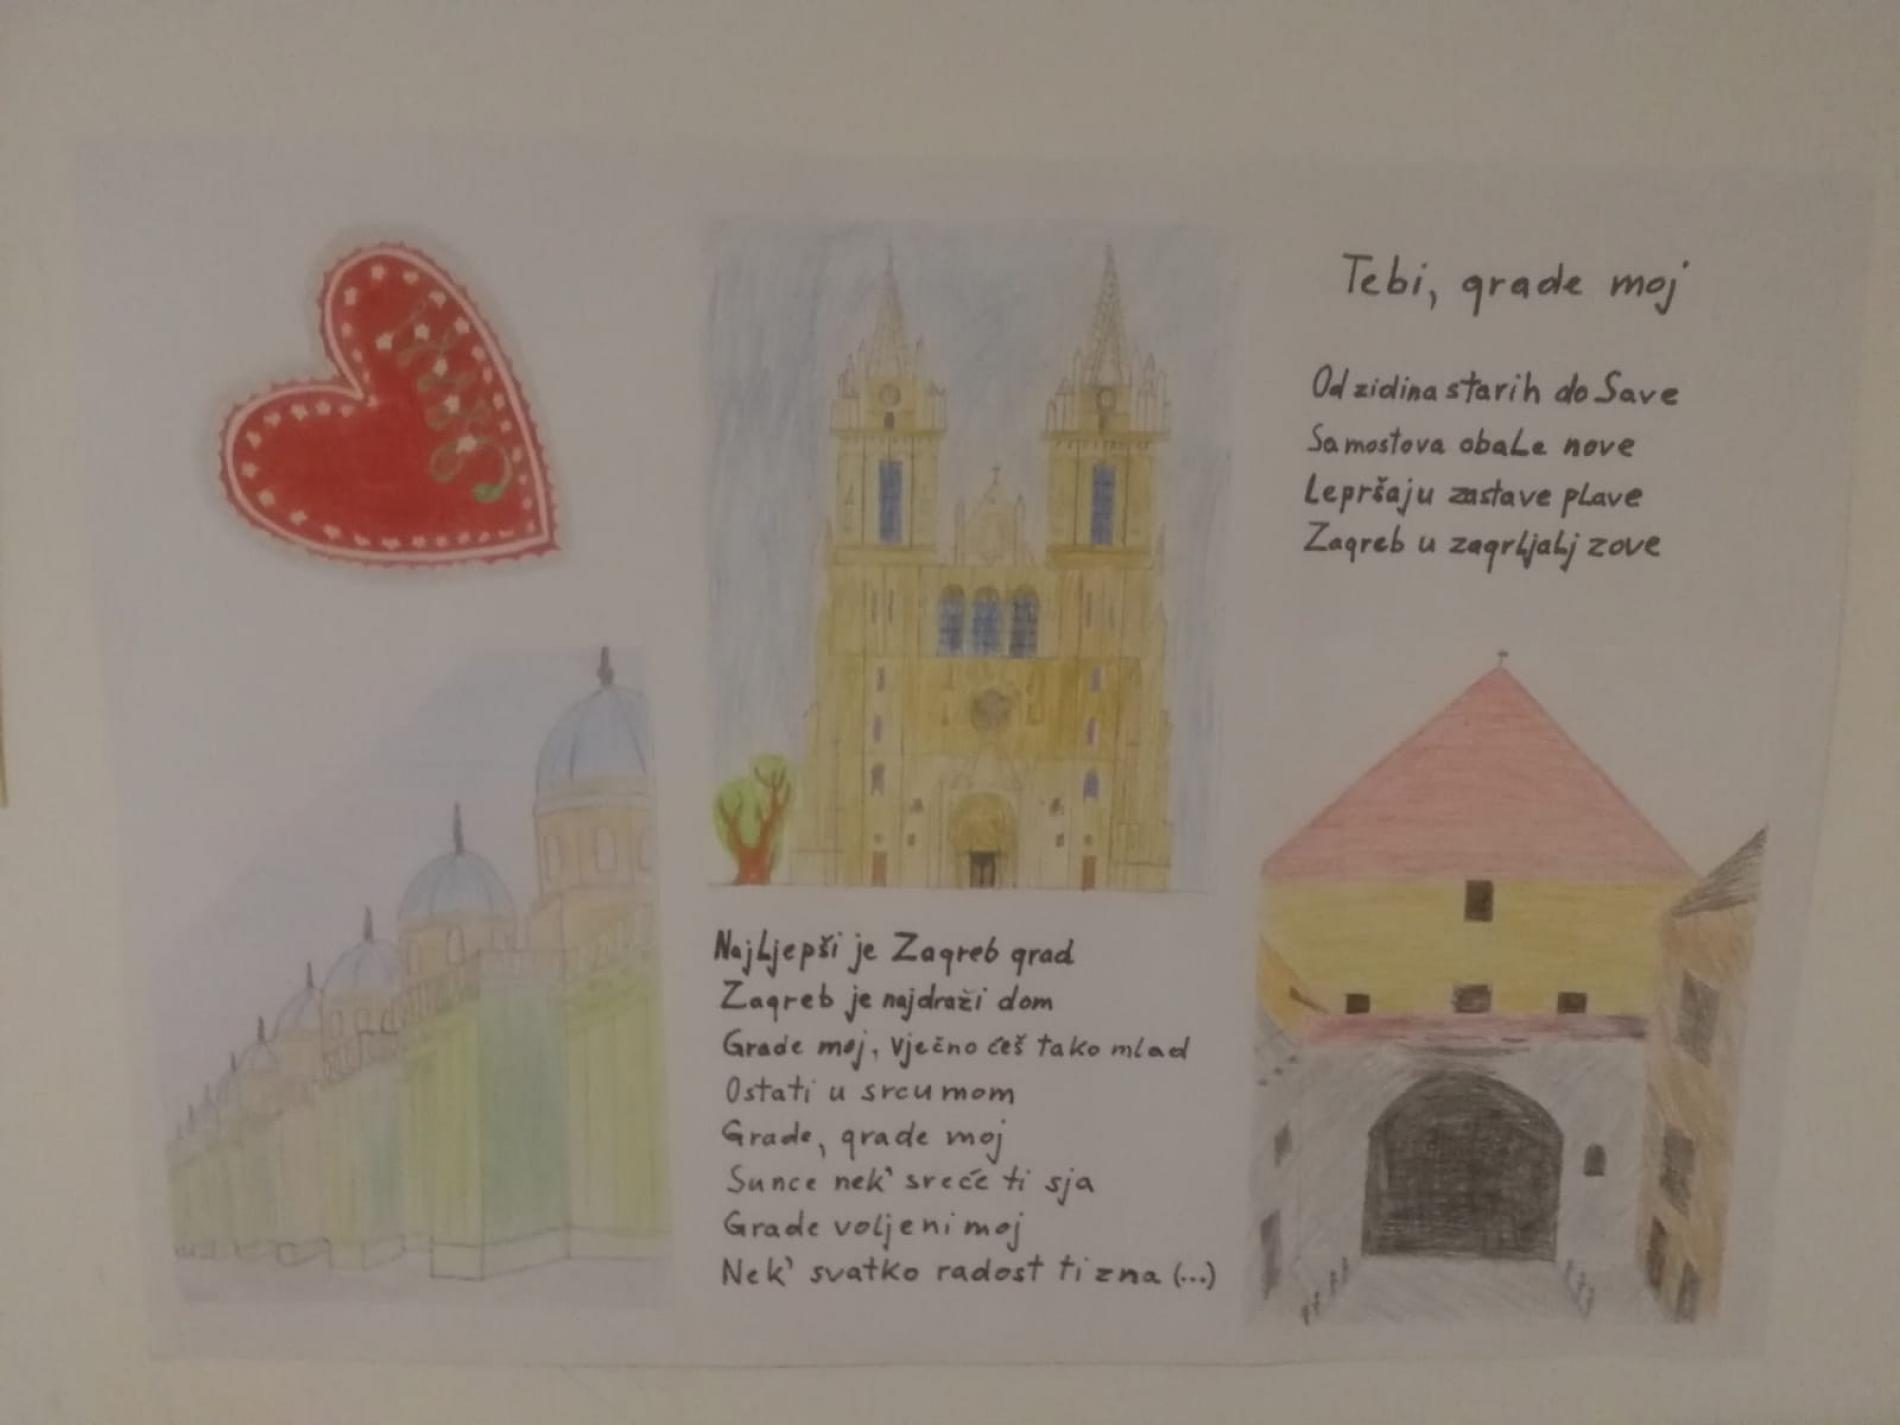 Tebi, grade moj
Od zidina starih do Save
Sa mostova obale nove
Lepršaju zastave plave
Zagreb u zagrljalj zove
Najljepši je Zagreb grad
Zagreb je najdraži dom
Grade moj, vječno ćeš tako mlad
Ostati u srcu mom
Grade, grade moj
Sunce nek' sreće ti sja
Grade voljeni moj
Nek' svatko radost ti zna (...)